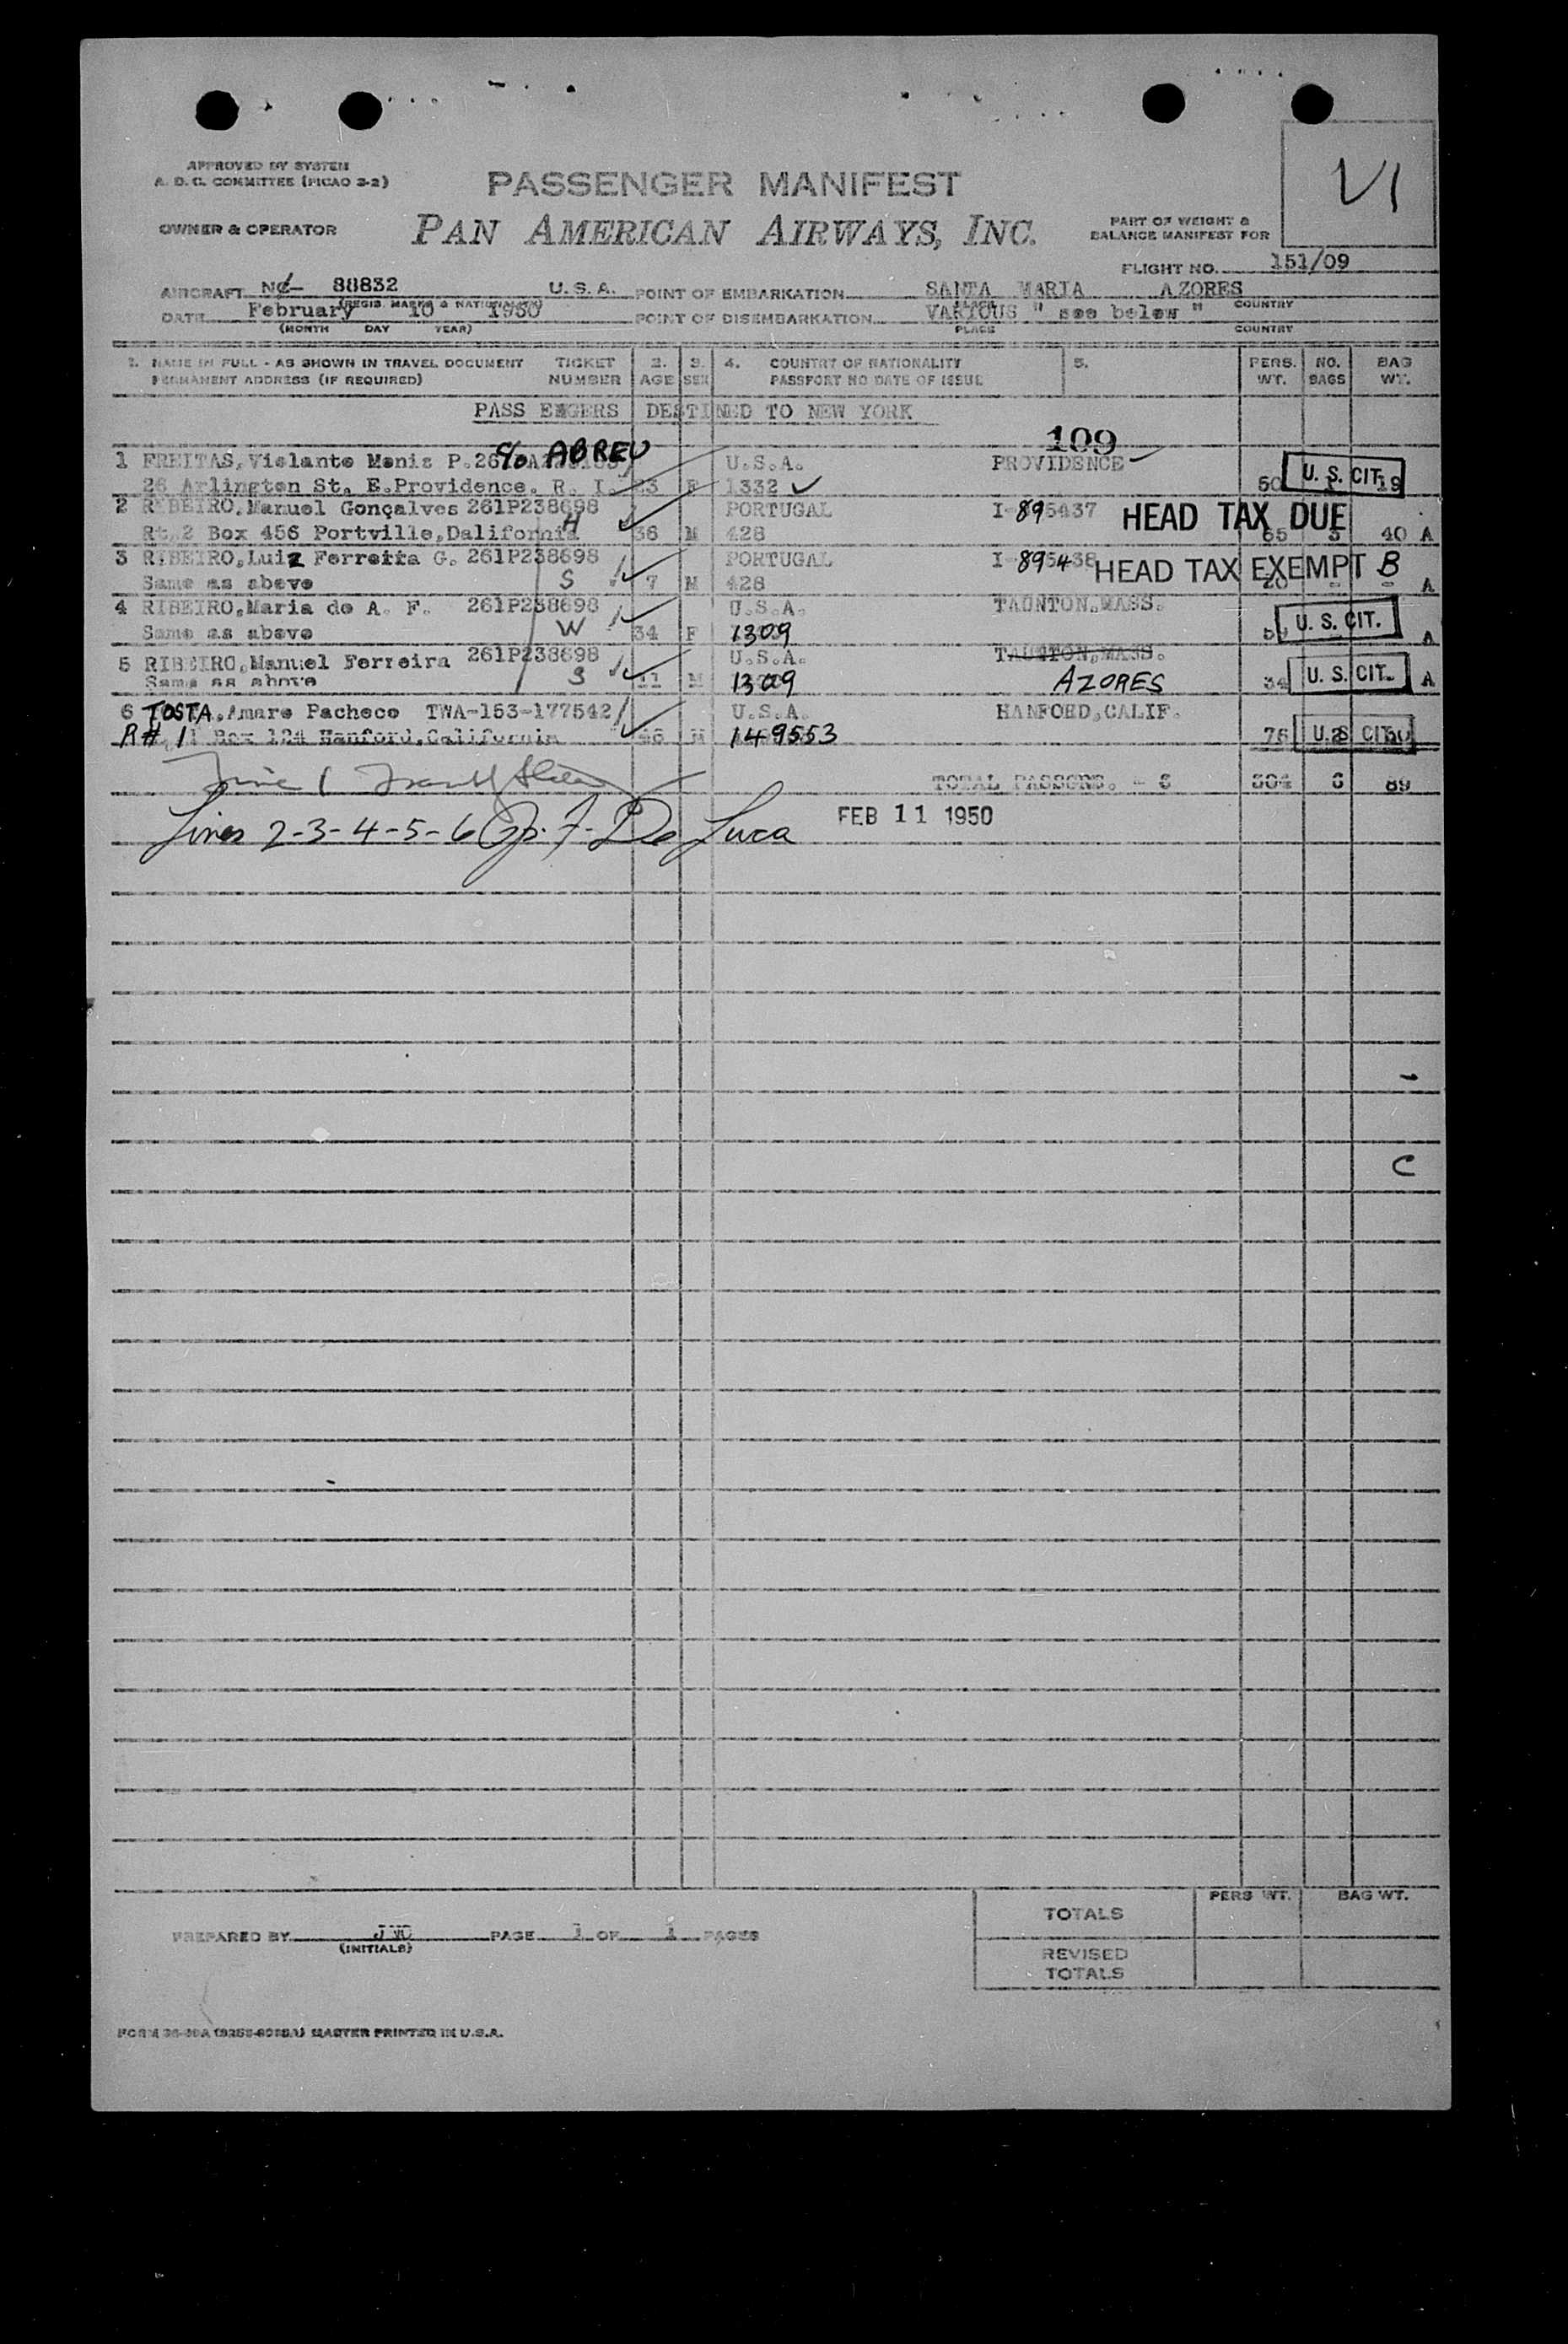 APPROVED BY SYSTEM
A. D. C. COMMITTEE (PICAO 3-2)
PASSENGER MANIFEST
VI
OWNER & OPERATOR
PAN AMERICAN AIRWAYS, INC.
PART OF WEIGHT &
BALANCE MANIFEST FOR
FLIGHT NO. 151/09
AIRCRAFT NC- 88832 U. S. A. POINT OF EMBARKATION SANTA MARIA AZORES
(REGIS. MARKS & NATIONALITY) PLACE COUNTRY
DATE February 10 1950 POINT OF DISEMBARKATION VARIOUS " see below "
(MONTH DAY YEAR) PLACE COUNTRY
1. NAME IN FULL - AS SHOWN IN TRAVEL DOCUMENT TICKET 2. 3. 4. COUNTRY OF NATIONALITY 5. PERS. NO. BAG
PERMANENT ADDRESS (IF REQUIRED) NUMBER AGE SEX PASSPORT NO DATE OF ISSUE WT. BAGS WT.
PASS ENGERS DESTINED TO NEW YORK
109
1 FREITAS, Violante Moniz P. c/o ABREU U.S.A. PROVIDENCE
26 Arlington St. E.Providence. R. I. F 1332 50 U. S. CIT. 19
2 RIBEIRO, Manuel Gonçalves 261P238698 PORTUGAL I-895437 HEAD TAX DUE
Rt. 2 Box 456 Portville, Dalifornia H 36 M 428 65 3 40 A
3 RIBEIRO, Luiz Ferreira G. 261P238698 PORTUGAL I-895438 HEAD TAX EXEMPT B
Same as above S 7 M 428 20 - - A
4 RIBEIRO, Maria de A. F. 261P238698 U.S.A. TAUNTON, MASS.
Same as above W 34 F 1309 U. S. CIT. A
5 RIBEIRO, Manuel Ferreira 261P238698 U.S.A. TAUNTON, MASS.
Same as above S 11 M 1309 AZORES 34 U. S. CIT. A
6 TOSTA, Amaro Pacheco TWA-153-177542 U.S.A. HANFORD, CALIF.
R# 1 Box 124 Hanford, California 46 M 149553 76 U. S. CIT.
TOTAL PASSGRS. - 6 304 6 89
Lines 2-3-4-5-6 De Luca FEB 11 1950
C
PERS WT. BAG WT.
TOTALS
PREPARED BY (INITIALS) PAGE 1 OF 1 PAGES
REVISED
TOTALS
MASTER PRINTED IN U.S.A.